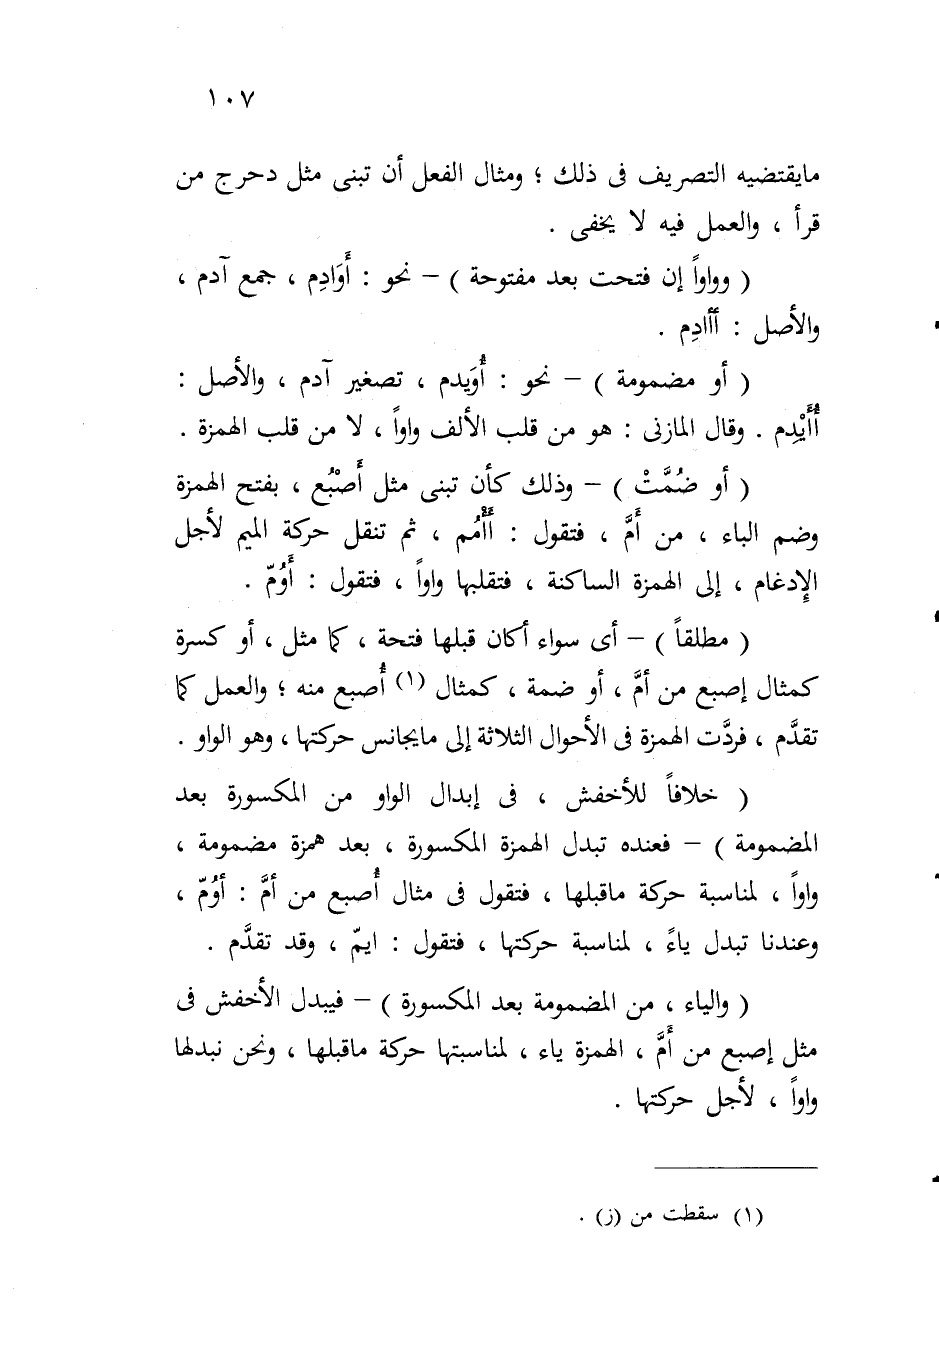 ١٠٧
مايقتضيه التصريف فى ذلك ؛ ومثال الفعل أن تبنى مثل دحرج من
قرأ ، والعمل فيه لا يخفى .
( وواواً إن فتحت بعد مفتوحة ) – نحو : أَوَادِم ، جمع آدم ،
والأصل : أَأَادِم .
( أو مضمومة ) – نحو : أُوَيدم ، تصغير آدم ، والأصل :
أُأَيْدِم . وقال المازنى : هو من قلب الألف واواً ، لا من قلب الهمزة .
( أو ضُمَّتْ ) – وذلك كأن تبنى مثل أَصْبُع ، بفتح الهمزة
وضم الباء ، من أَمَّ ، فتقول : أَأْمُم ، ثم تنقل حركة الميم لأجل
الإدغام ، إلى الهمزة الساكنة ، فتقلبها واواً ، فتقول : أَوُمّ .
( مطلقاً ) – أى سواء أكان قبلها فتحة ، كما مثل ، أو كسرة
كمثال إصبع من أمَّ ، أو ضمة ، كمثال (١) أُصبع منه ؛ والعمل كما
تقدَّم ، فردَّت الهمزة فى الأحوال الثلاثة إلى مايجانس حركتها ، وهو الواو .
( خلافاً للأخفش ، فى إبدال الواو من المكسورة بعد
المضمومة ) – فعنده تبدل الهمزة المكسورة ، بعد همزة مضمومة ،
واواً ، لمناسبة حركة ماقبلها ، فتقول فى مثال أُصبع من أمَّ : أوُمّ ،
وعندنا تبدل ياءً ، لمناسبة حركتها ، فتقول : ايمّ ، وقد تقدَّم .
( والياء ، من المضمومة بعد المكسورة ) – فيبدل الأخفش فى
مثل إصبع من أَمَّ ، الهمزة ياء ، لمناسبتها حركة ماقبلها ، ونحن نبدلها
واواً ، لأجل حركتها .
(١) سقطت من (ز) .